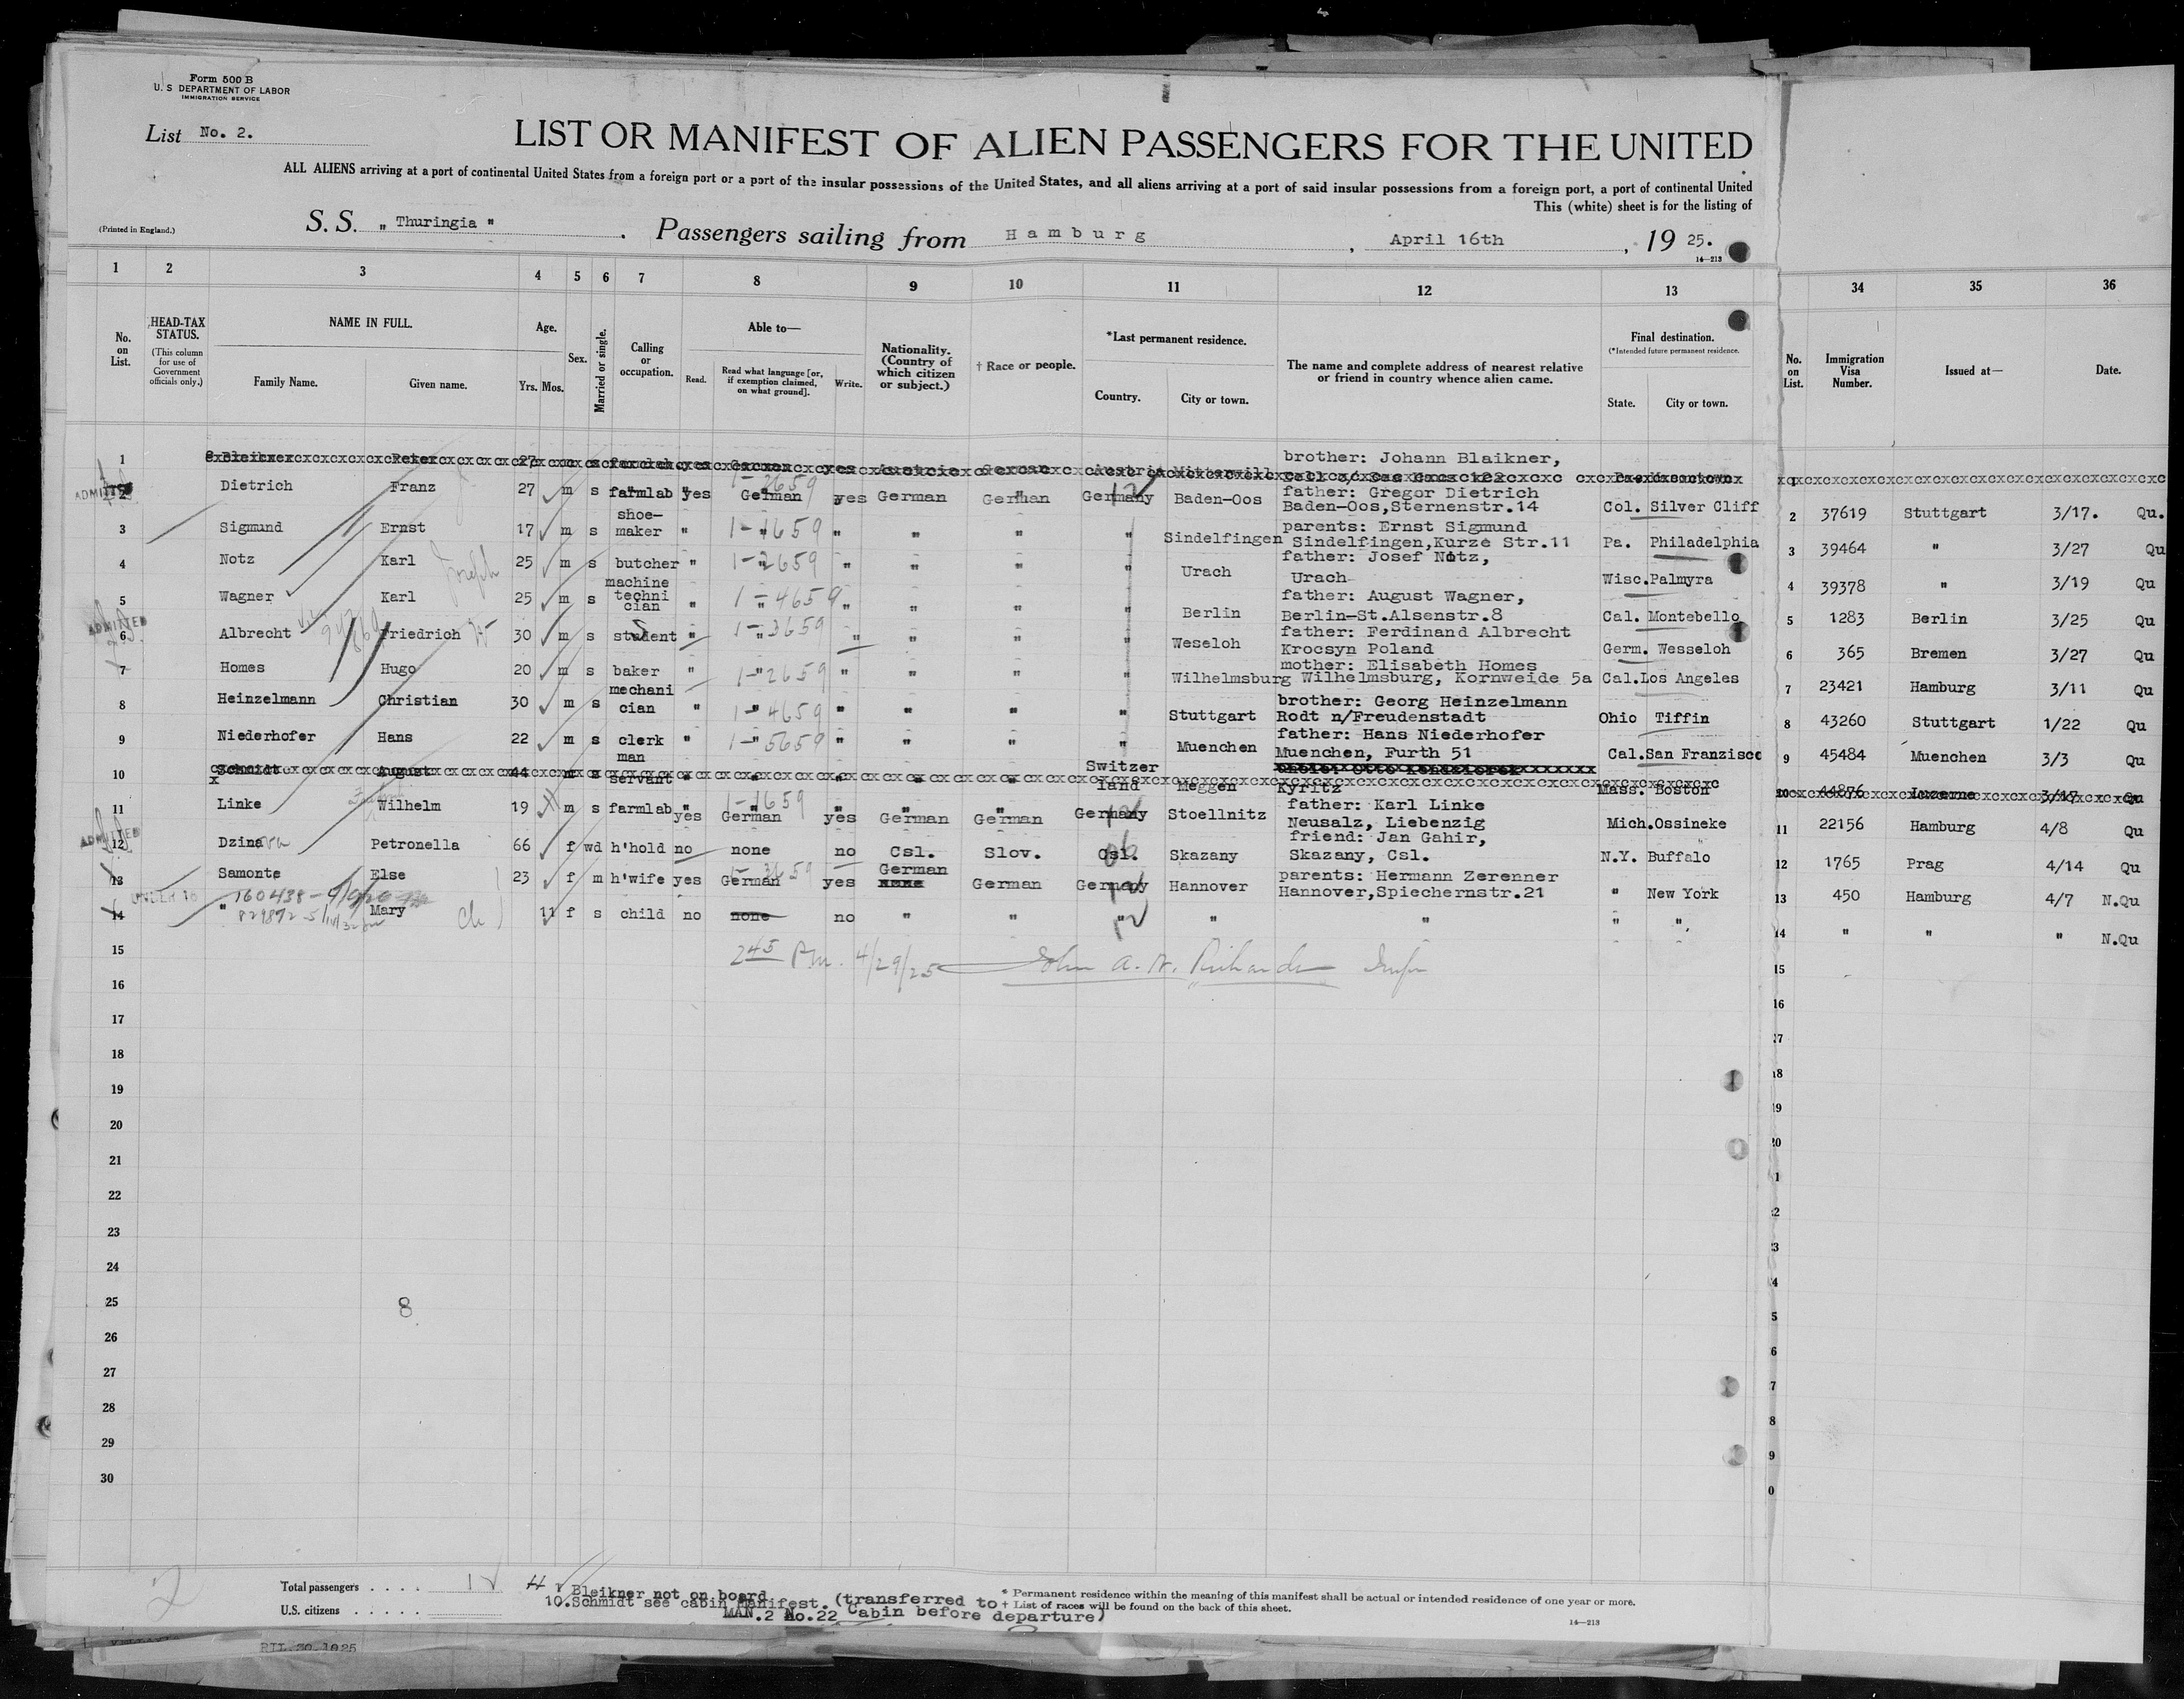 Form 500 B
U. S DEPARTMENT OF LABOR
IMMIGRATION SERVICE
List No. 2.
LIST OR MANIFEST OF ALIEN PASSENGERS FOR THE UNITED
ALL ALIENS arriving at a port of continental United States from a foreign port or a port of the insular possessions of the United States, and all aliens arriving at a port of said insular possessions from a foreign port, a port of continental United
This (white) sheet is for the listing of
(Printed in England.)
S. S. „ Thuringia " . Passengers sailing from Hamburg , April 16th , 19 25.
14—213
1 2 3 4 5 6 7 8 9 10 11 12 13 34 35 36
No. on List.
HEAD-TAX STATUS.
(This column for use of Government officials only.)
NAME IN FULL.
Family Name. Given name.
Age.
Yrs. Mos.
Sex.
Married or single.
Calling or occupation.
Able to—
Read. Read what language [or, if exemption claimed, on what ground]. Write.
Nationality. (Country of which citizen or subject.)
† Race or people.
*Last permanent residence.
Country. City or town.
The name and complete address of nearest relative or friend in country whence alien came.
Final destination.
(*Intended future permanent residence.
State. City or town.
No. on List.
Immigration Visa Number.
Issued at—
Date.
1 Bleikner Peter 27 m s farmlab yes German yes Austria German Austria brother: Johann Blaikner, Pa. Masontown 1
ADMITTED
2 Dietrich Franz 27 m s farmlab yes German yes German German Germany Baden-Oos father: Gregor Dietrich Baden-Oos,Sternenstr.14 Col. Silver Cliff 2 37619 Stuttgart 3/17. Qu.
3 Sigmund Ernst 17 m s shoe-maker " 1-1659 " " " " Sindelfingen parents: Ernst Sigmund Sindelfingen,Kurze Str.11 Pa. Philadelphia 3 39464 " 3/27 Qu
4 Notz Karl Joseph 25 m s butcher " 1-2659 " " " " Urach father: Josef Notz, Urach Wisc. Palmyra 4 39378 " 3/19 Qu
5 Wagner Karl 25 m s machine techni cian " 1-4659 " " " " Berlin father: August Wagner, Berlin-St.Alsenstr.8 Cal. Montebello 5 1283 Berlin 3/25 Qu
ADMITTED
6 Albrecht Friedrich 30 m s student " 1-3659 " " " " Weseloh father: Ferdinand Albrecht Krocsyn Poland Germ. Wesseloh 6 365 Bremen 3/27 Qu
7 Homes Hugo 20 m s baker " 1-2659 " " " " Wilhelmsburg mother: Elisabeth Homes Wilhelmsburg, Kornweide 5a Cal. Los Angeles 7 23421 Hamburg 3/11 Qu
8 Heinzelmann Christian 30 m s mechani cian " 1-4659 " " " " Stuttgart brother: Georg Heinzelmann Rodt n/Freudenstadt Ohio Tiffin 8 43260 Stuttgart 1/22 Qu
9 Niederhofer Hans 22 m s clerk " 1-5659 " " " " Muenchen father: Hans Niederhofer Muenchen, Furth 51 Cal. San Franzisco 9 45484 Muenchen 3/3 Qu
10 Schmidt August 44 m s man servant " " " " " Switzer land Meggen Kyritz Mass. Boston 10 44876 Luzerne 3/17 Qu
11 Linke Wilhelm 19 m s farmlab yes 1-1659 German yes German German Germany Stoellnitz father: Karl Linke Neusalz, Liebenzig Mich. Ossineke 11 22156 Hamburg 4/8 Qu
ADMITTED
12 Dzina Petronella 66 f wd h'hold no none no Csl. Slov. Csl. Skazany friend: Jan Gahir, Skazany, Csl. N.Y. Buffalo 12 1765 Prag 4/14 Qu
13 Samonte Else 23 f m h'wife yes 1-3659 German yes German none German Germany Hannover parents: Hermann Zerenner Hannover,Spiechernstr.21 " New York 13 450 Hamburg 4/7 N.Qu
UNDER 16
14 " Mary ch 11 f s child no none no " " " " " " " 14 " " " N.Qu
15 245 P.m. 4/29/25 John A. W. Richards Insp 15
16 16
17
18
19
20
21
22
23
24
25 8
26
27
28
29
30
2
Total passengers . . . .
U.S. citizens . . . . .
Bleikner not on board
10.Schmidt see cabin Manifest. (transferred to
MAN.2 No.22 Cabin before departure)
* Permanent residence within the meaning of this manifest shall be actual or intended residence of one year or more.
† List of races will be found on the back of this sheet.
14—213